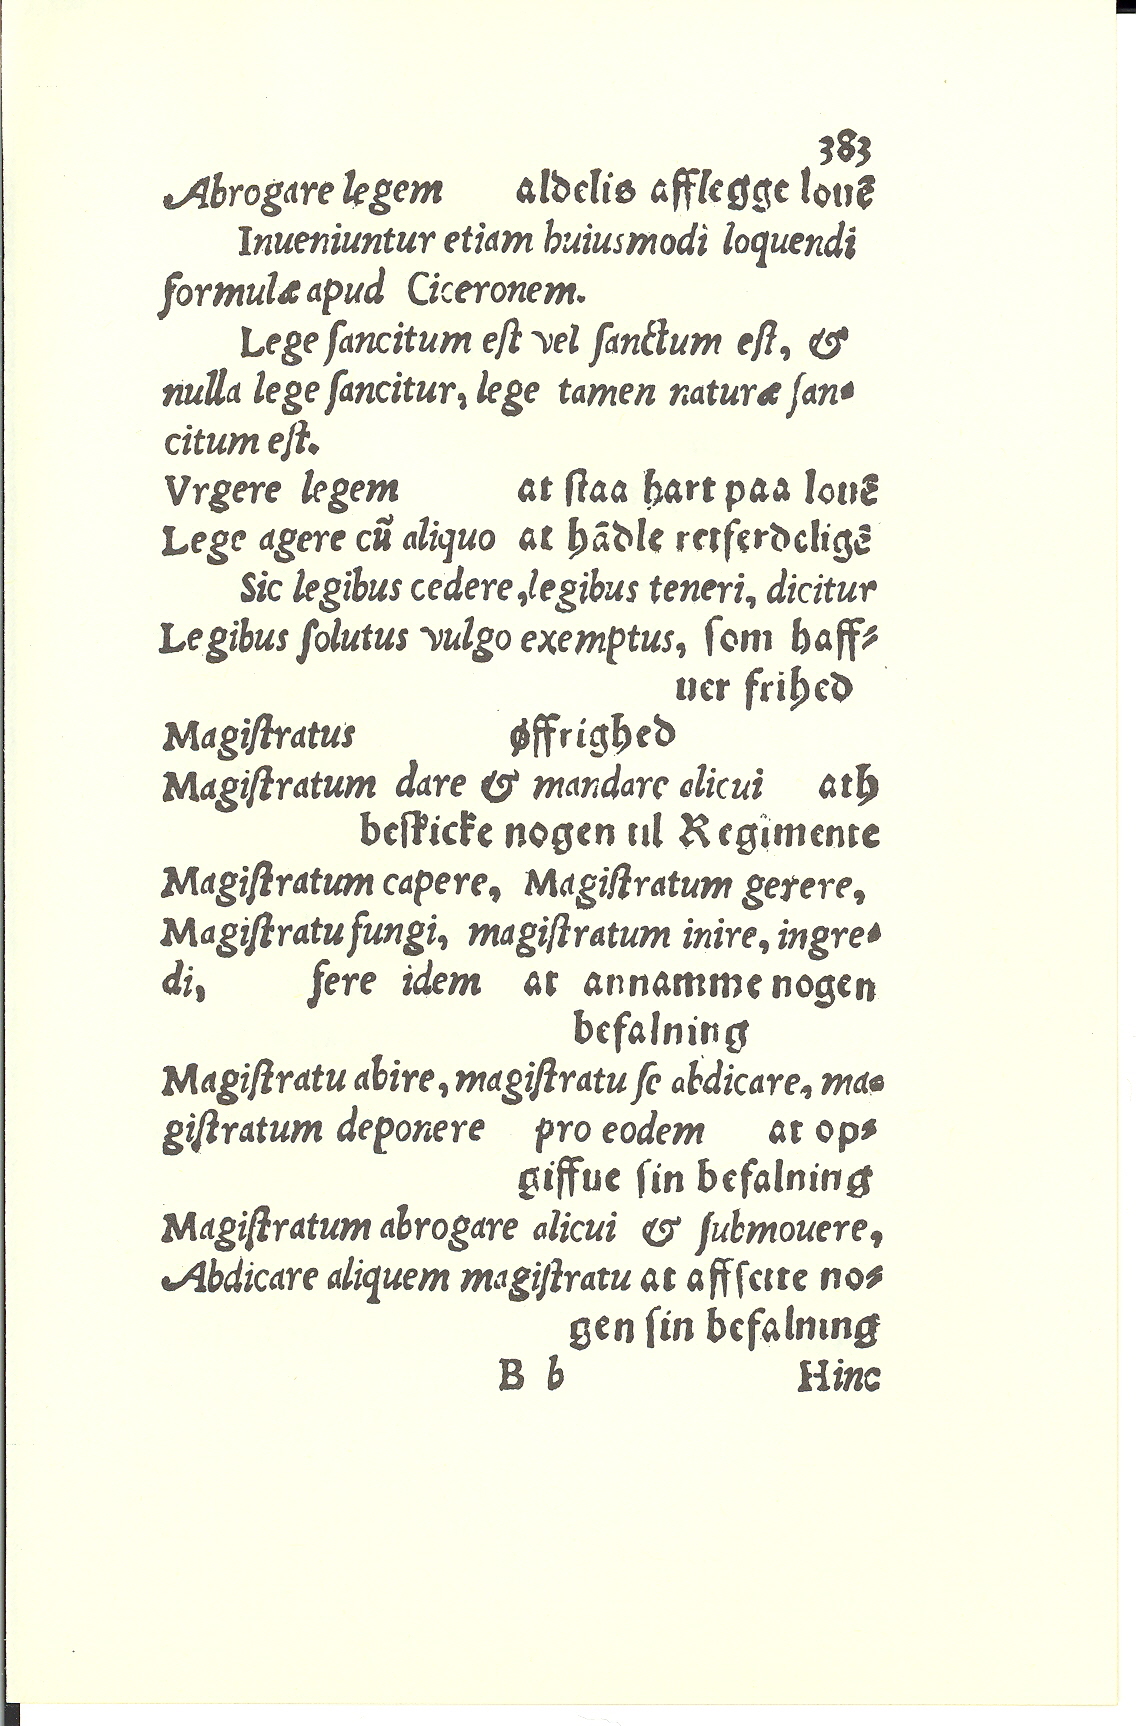 383
Abrogare legem aldelis afflegge louẽ
Inueniuntur etiam huiusmodi loquendi
formulæ apud Ciceronem.
Lege ſancitum eſt vel ſanctum eſt, &
nulla lege ſancitur, lege tamen naturæ ſan-
citum eſt.
Vrgere legem at ſtaa hart paa louẽ
Lege agere cũ aliquo at hãdle retferdeligẽ
Sic legibus cedere, legibus teneri, dicitur
Legibus ſolutus vulgo exemptus, ſom haff-
uer frihed
Magiſtratus Øffrighed
Magiſtratum dare & mandare alicui ath
beſkicke nogen til Regimente
Magiſtratum capere, Magiſtratum gerere,
Magiſtratu fungi, magiſtratum inire, ingre-
di, fere idem at annamme nogen
befalning
Magiſtratu abire, magiſtratu ſe abdicare, ma-
giſtratum deponere pro eodem at op-
giffue ſin befalning
Magiſtratum abrogare alicui & ſubmouere,
Abdicare aliquem magiſtratu at affſette no-
gen ſin befalning
B b Hinc